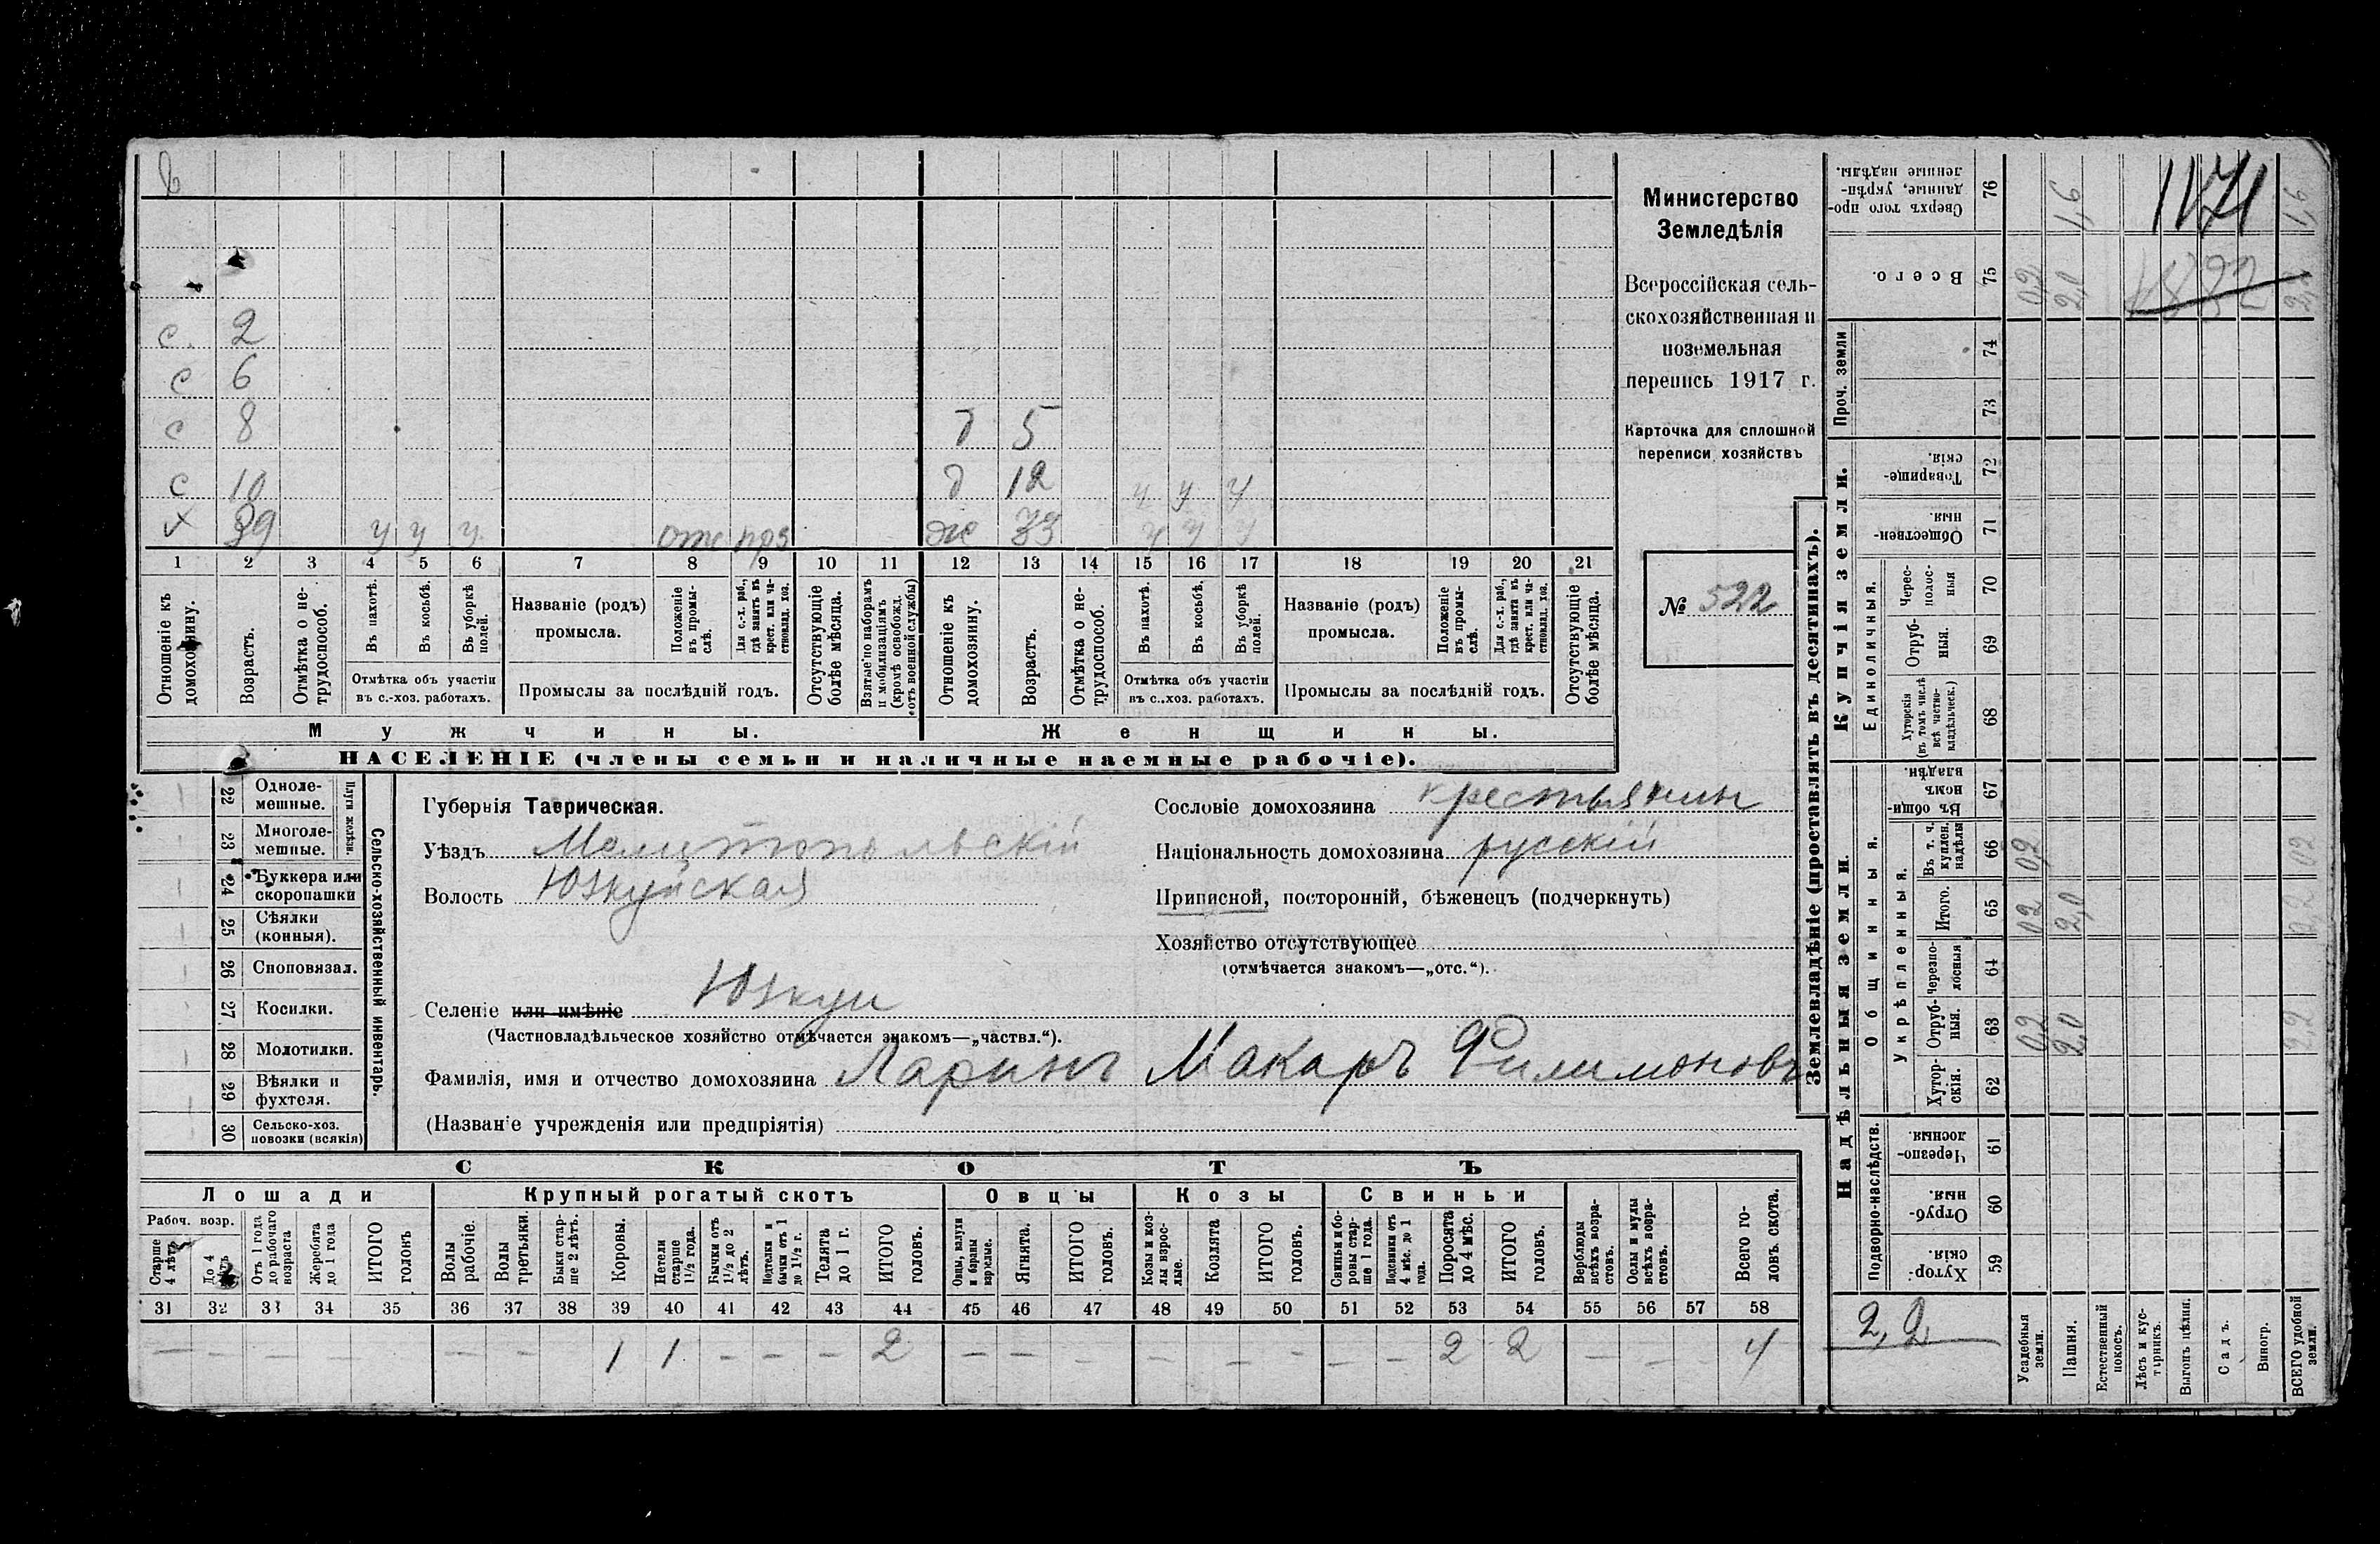 с. 2
с 6
с 8 д 5
с 10 д 12 у у у
х 39 у у у отс прз ж 33 у у у
1 2 3 4 5 6 7 8 9 10 11 12 13 14 15 16 17 18 19 20 21
Отношеніе къ домохозяину.
Возрастъ.
Отмѣтка о нетрудоспособ.
Въ пахотѣ.
Въ косьбѣ.
Въ уборкѣ полей.
Отмѣтка объ участіи
въ с.-хоз. работахъ.
Названіе (родъ)
промысла.
Положеніе въ промыслѣ.
Для с.-х. раб., гдѣ занятъ въ крест. или частновлад. хоз.
Промыслы за послѣдній годъ.
Отсутствующіе болѣе мѣсяца.
Взятые по наборамъ и мобилизаціямъ (кромѣ освобожд. отъ военной службы)
Отношеніе къ домохозяину.
Возрастъ.
Отмѣтка о нетрудоспособ.
Въ пахотѣ.
Въ косьбѣ.
Въ уборкѣ полей.
Отмѣтка объ участіи
въ с.-хоз. работахъ.
Названіе (родъ)
промысла.
Положеніе въ промыслѣ.
Для с.-х. раб., гдѣ занята въ крест. или частновлад. хоз.
Промыслы за послѣдній годъ.
Отсутствующіе болѣе мѣсяца.
Мужчины. Женщины.
НАСЕЛЕНІЕ (члены семьи и наличные наемные рабочіе).
Министерство
Земледѣлія
Всероссійская сель-
скохозяйственная и
поземельная
перепись 1917 г.
Карточка для сплошной
переписи хозяйствъ
№ 522
22 Одноле-
мешные.
23 Многоле-
мешные.
Плуги желѣзн.
24 Буккера или
скоропашки
25 Сѣялки
(конныя).
26 Сноповязал.
27 Косилки.
28 Молотилки.
29 Вѣялки и
фухтеля.
30 Сельско-хоз.
повозки (всякія)
Сельско-хозяйственный инвентарь.
Губернія Таврическая.
Уѣздъ Мелитопольскій
Волость Юзкуйская
Селеніе или имѣніе Юзкуи
(Частновладѣльческое хозяйство отмѣчается знакомъ—„частвл.“).
Фамилія, имя и отчество домохозяина Ларинъ Макаръ Филимоновъ
(Названіе учрежденія или предпріятія)
Сословіе домохозяина крестьянин
Національность домохозяина русскій
Приписной, посторонній, бѣженецъ (подчеркнуть)
Хозяйство отсутствующее
(отмѣчается знакомъ—„отс.“).
СКОТЪ
Лошади Крупный рогатый скотъ Овцы Козы Свиньи
Рабоч. возр.
Старше 4 лѣтъ
До 4 лѣтъ
Отъ 1 года до рабочаго возраста
Жеребята до 1 года
ИТОГО головъ
Волы рабочіе.
Волы третьяки.
Быки старше 2 лѣтъ.
Коровы.
Нетели старше 1½ года.
Бычки отъ 1½ до 2 лѣтъ.
Подтелки и бычки отъ 1 до 1½ г.
Телята до 1 г.
ИТОГО головъ.
Овцы, валухи и бараны взрослые.
Ягнята.
ИТОГО головъ.
Козы и козлы взрослые.
Козлята
ИТОГО головъ.
Свиньи и боровы старше 1 года.
Подсвинки отъ 4 мѣс. до 1 года.
Поросята до 4 мѣс.
ИТОГО головъ.
Верблюды всѣхъ возрастовъ.
Ослы и мулы всѣхъ возрастовъ.
Всего головъ скота.
31 32 33 34 35 36 37 38 39 40 41 42 43 44 45 46 47 48 49 50 51 52 53 54 55 56 57 58
— — — — — — 1 1 — — — 2 — — — — — — — — 2 2 — — — 4
Землевладѣніе (проставлять въ десятинахъ).
Сверхъ того проданные, укрѣпленные надѣлы. 76 1,6 1,6
1171
Всего. 75 0,2 2,0 2,2
Проч. земли
74
73
Купчія земли.
Товарищескія. 72
Общественныя. 71
Единоличныя.
Чересполосныя 70
Отрубныя. 69
Хуторскія (въ томъ числѣ всѣ частновладѣльческ.) 68
Надѣльныя земли.
Общинныя.
Въ общинномъ владѣн. 67
Укрѣпленныя.
Въ т. ч. куплен. надѣлы 66 0,2 0,2
Итого. 65 0,2 2,0 2,2
Черезполосныя 64
Отрубныя. 63 0,2 2,0 2,2
Хуторскія. 62
Подворно-наслѣдств.
Черезполосныя. 61
Отрубныя. 60
Хуторскія. 59
2,2
Усадебныя земли.
Пашня.
Естественный покосъ.
Лѣсъ и кустарникъ.
Выгонъ цѣлин.
Садъ.
Виногр.
ВСЕГО удобной земли.